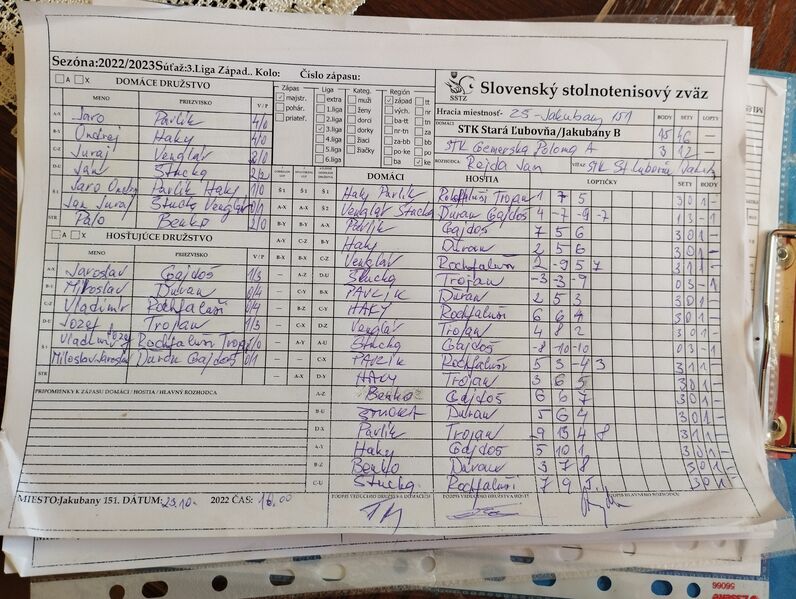 Sezóna:2022/2023 Súťaž:3.Liga Západ.. Kolo: Číslo zápasu:
A X DOMÁCE DRUŽSTVO
MENO PRIEZVISKO V / P
A-X Jaro Pavlik 4/0
B-Y Ondrej Haky 4/0
C-Z Juraj Venglár
D-U Ján Stucka 2/2
Š 1 Jaro Ondrej Pavlik Haky 1/0
Jan Juraj Stucka Venglár 0/1
STR Palo Benko 2/0
A X HOSŤUJÚCE DRUŽSTVO
MENO PRIEZVISKO V / P
A-X Jaroslav Gajdoš 1/3
B-U Miroslav Duran 0/4
C-Z Vladimír Rochfaluši 0/4
D-U Jozef Trojan 1/3
Š 1 Vladimír Jozef Rochfaluši Trojan
Miloslav Jaroslav Duran Gajdoš 0/1
STR
PRIPOMIENKY K ZÁPASU DOMÁCI / HOSTIA / HLAVNÝ ROZHODCA
MIESTO:Jakubany 151. DÁTUM: 23.10. 2022 ČAS: 16.00
Zápas
majstr.
pohár.
priateľ.
Liga
extra
1.liga
2.liga
3.liga
4.liga
5.liga
6.liga
Kateg.
muži
ženy
dorci
dorky
žiaci
žiačky
Región
západ
vých.
nr-tn
za-bb
ko-bb
po-ba
ba
tt
nr
tn
za
bb
po
ke
SSTZ
Slovenský stolnotenisový zväz
Hracia miestnosť- 25-Jakubany 151 BODY SETY LOPTY
DOMÁCI STK Stará Ľubovňa/Jakubany B 15 46 –
STK Gemerska Poloma A 3 12 –
ROZHODCA: Rejda Jan VÍŤAZ:
DOMÁCI HOSTIA LOPTIČKY SETY BODY
Š 1 Š 1 Š 1 Haky Pavlik Rochfaluši Trojan 1 7 5 3 0 1 –
Venglár Stucka Duran Gajdoš 4 -7 -9 -7 1 3 – 1
Pavlik Gajdoš 7 5 6 3 0 1 –
Haky Duran 2 5 6 3 0 1 –
Venglár Rochfaluši 2 -9 5 7 3 1 1 –
Stucka Trojan -3 -3 -9 0 3 – 1
PAVLÍK Duran 2 5 3 3 0 1 –
HAKY Rochfaluši 6 6 4 3 0 1 –
Venglár Trojan 4 8 2 3 0 1 –
Stucka Gajdoš -8 -10 -10 0 3 – 1
PAVLÍK Rochfaluši 5 3 -4 3 3 1 1 –
HAKY Trojan 3 6 5 3 0 1 –
A-Z Benko Gajdoš 6 6 7 3 0 1 –
B-U Duran 5 6 4 3 0 1 –
D-X Pavlik Trojan -9 13 4 8 3 1 1 –
A-Y Haky Gajdoš 5 10 1 3 0 1 –
B-Z Benko Duran 3 7 8 3 0 1 –
C-U Stucka Rochfaluši 7 9 3 0 1 –
PODPIS VEDÚCEHO DRUŽSTVA DOMÁCICH PODPIS VEDÚCEHO DRUŽSTVA HOSTÍ PODPIS HLAVNÉHO ROZHODCU
56066